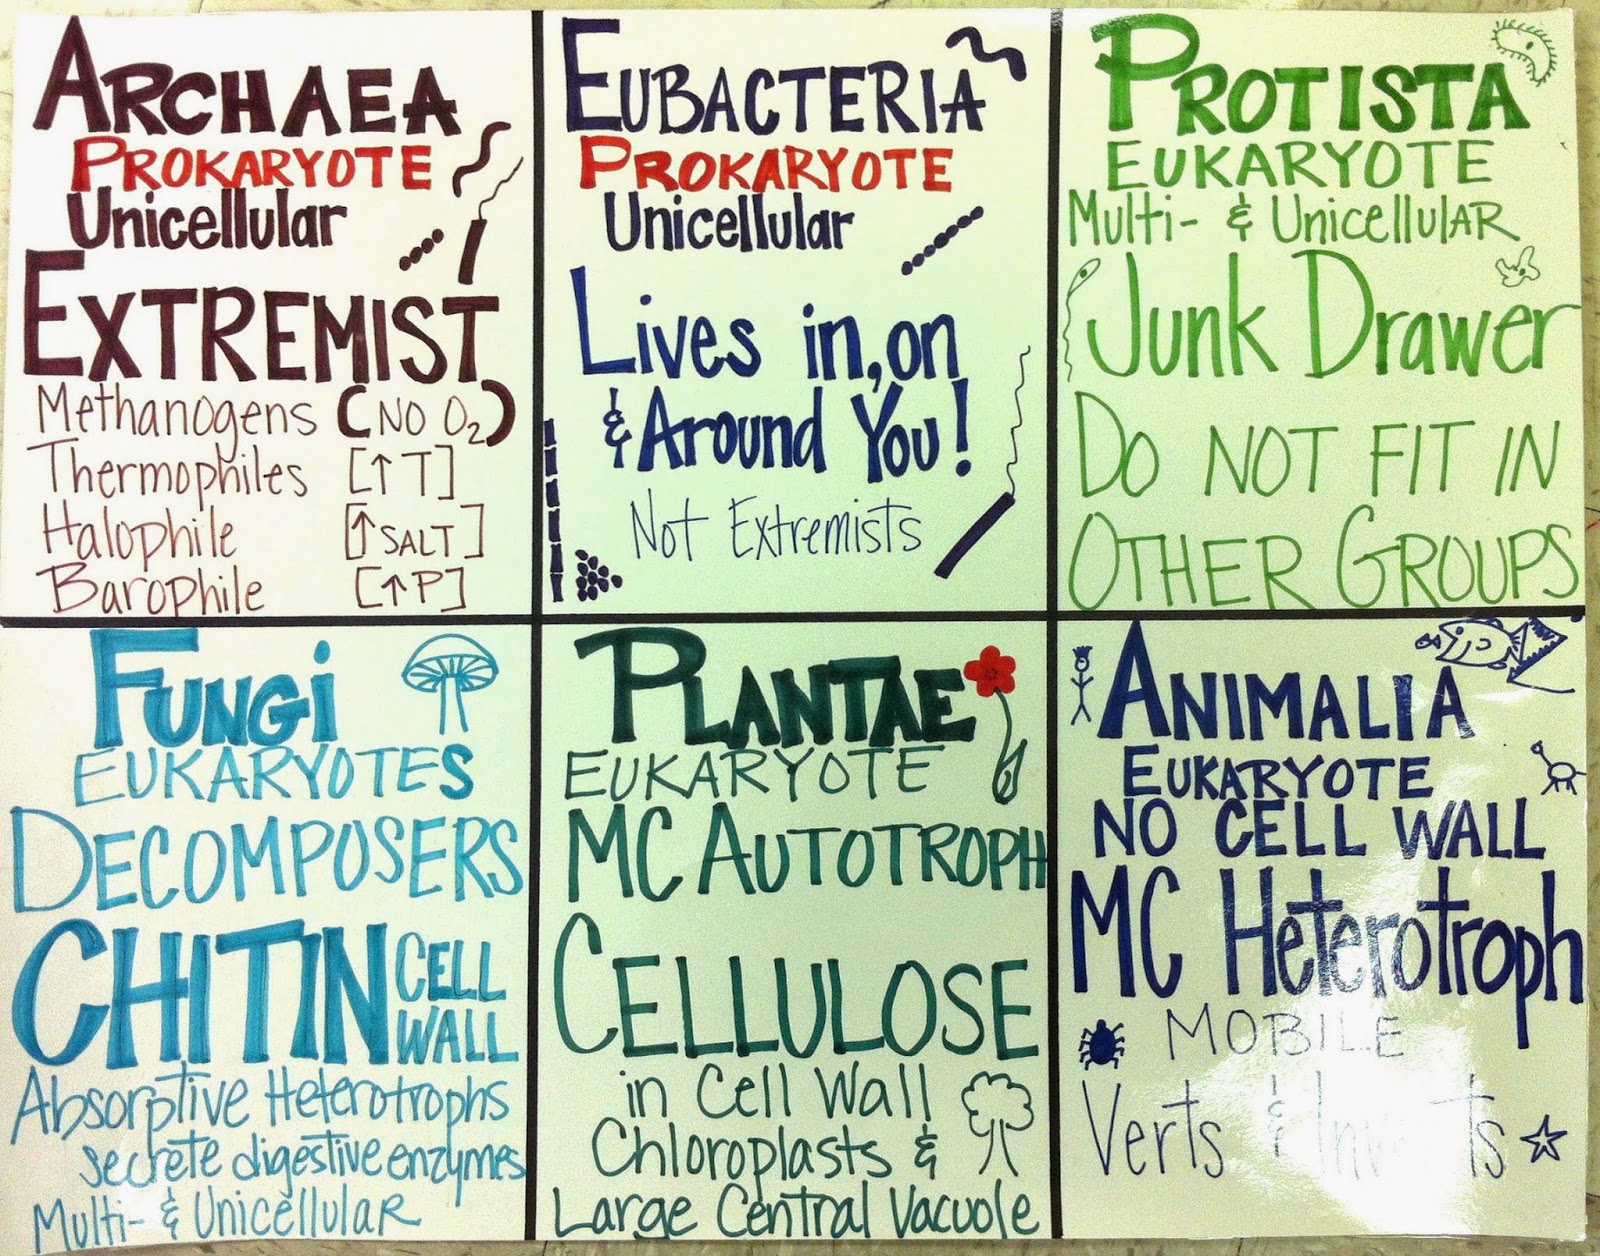 ARCHAEA
PROKARYOTE
Unicellular
EXTREMIST
Methanogens (NO O₂)
Thermophiles [↑T]
Halophile [↑SALT]
Barophile [↑P]
EUBACTERIA
PROKARYOTE
Unicellular
Lives in, on
& Around You!
Not Extremists
PROTISTA
EUKARYOTE
Multi- & UnicellulAR
Junk Drawer
DO NOT FIT IN
OTHER GROUPS
FUNGi
EUKARYOTES
DECOMPOSERS
CHITIN CELL
WALL
Absorptive Heterotrophs
secrete digestive enzymes
Multi- & UnicellulAR
PLANTAE
EUKARYOTE
MC AUTOTROPH
CELLULOSE
in Cell Wall
Chloroplasts &
Large Central Vacuole
ANIMALIA
EUKARYOTE
NO CELL WALL
MC Heterotroph
MOBILE
Verts &